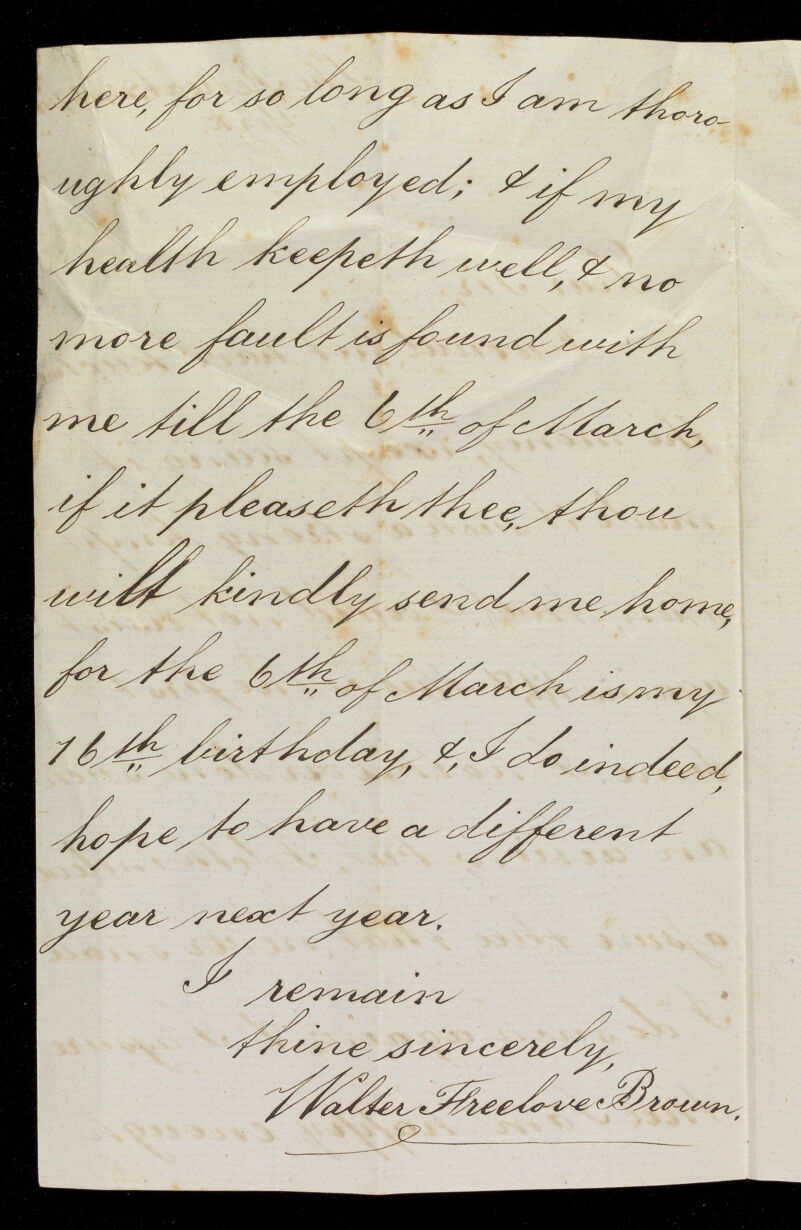 here, for so long as I am thoro-
ughly employed; & if my
health keepeth well, & no
more fault is found with
me till the 6th of March,
if it pleaseth thee, thou
wilt kindly send me home,
for the 6th of March is my
16th birthday, &, I do indeed,
hope to have a different
year next year.
I remain
thine sincerely,
Walter Freelove Brown.